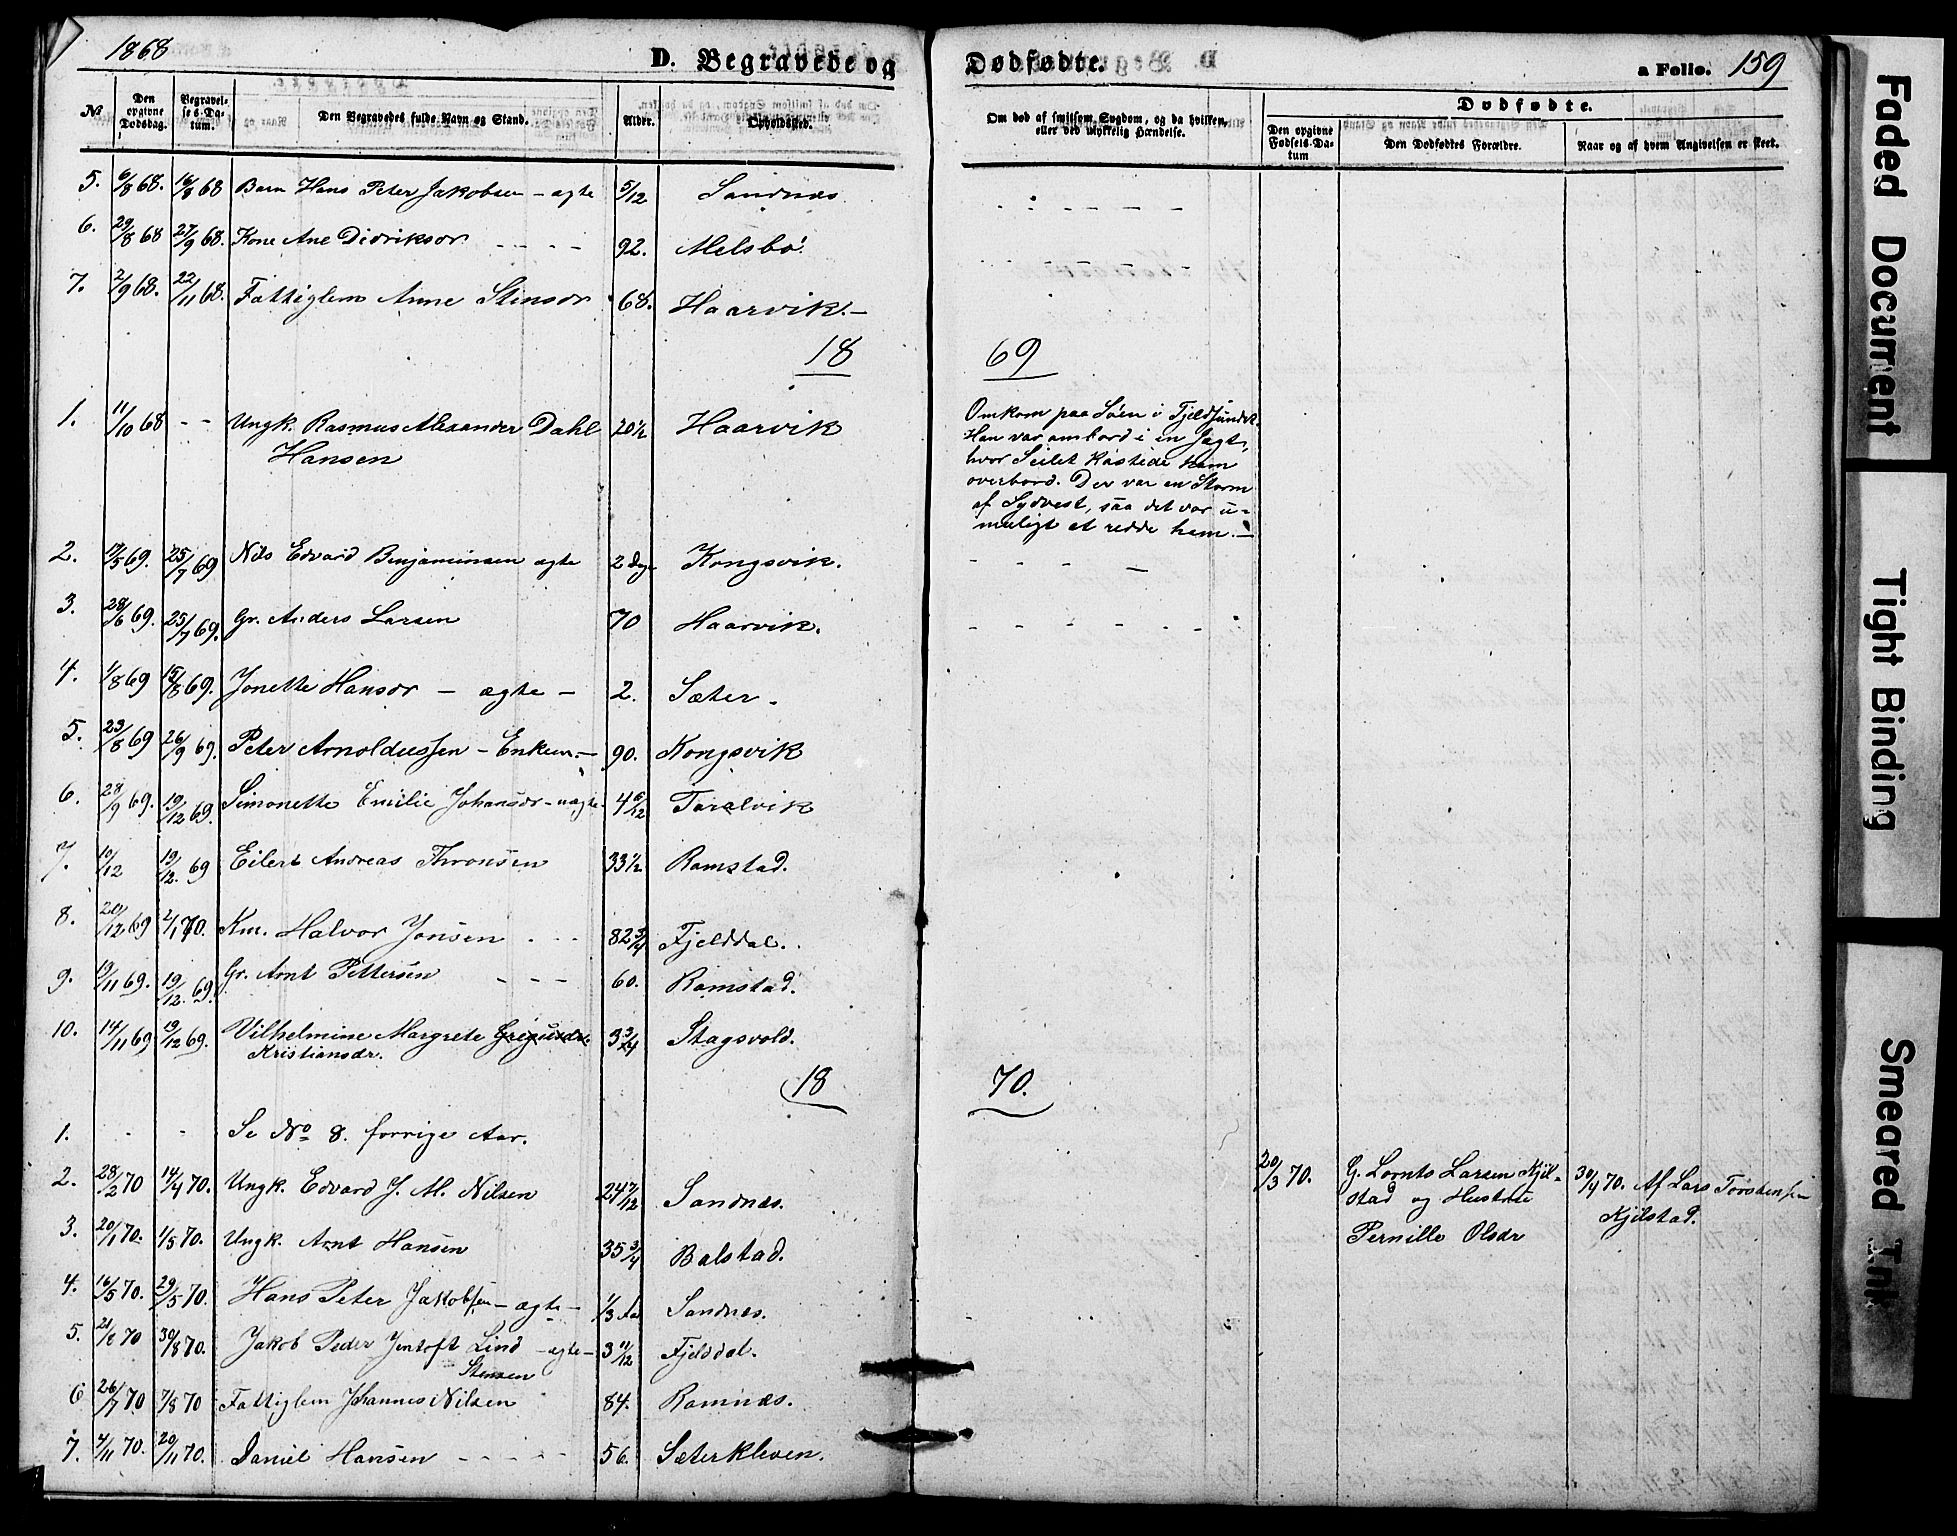 1868
D. Begravede og Dødfødte.
a Folio. 159
№ Den opgivne Dødsdag. Begravelses-Datum. Den Begravedes fulde Navn og Stand. Alder. Opholdssted. Om død af smitsom Sygdom, og da hvilken, eller ved ulykkelig Hændelse. Dødfødte.
Den opgivne Fødsels-Datum Den Dødfødtes Forældre. Naar og af hvem Angivelsen er skeet.
5. 6/8 68. 16/8 68 Barn Hans Peter Jakobsen - ægte 5/12 Sandnæs - - - - - -
6. 29/8 68 27/9 68. Kone Ane Didriksdr - - - - 92. Melsbø.
7. 2/9 68. 22/11 68. Fattiglem Anne Stensdr 68. Haarvik.-
18 69
1. 11/10 68 - - Ungk. Rasmus Alexander Dahl 20 1/2 Haarvik Omkom paa Søen i Tjeldsundet.
Hansen Han var ombord i en Jagt,
hvor Seilet kastede ham
overbord. Der var en Storm
af Sydvest, saa det var u-
muligt at redde ham.-
2. 19/5 69. 25/7 69 Nils Edvard Benjaminsen ægte 2 Dage Kongsvik. - - - -
3. 28/6 69. 25/7 69. Gr. Anders Larsen 70 Haarvik. - - - - - -
4. 1/8 69 15/8 69. Jonette Hansdr - ægte - 2. Sæter.
5. 23/8 69 26/9 69. Peter Arnoldussen - Enkem.- 90. Kongsvik
6. 28/9 69. 19/12 69. Simonette Emilie Johansdr - uægte- 4 6/12 Taralvik
7. 10/12 19/12. 69 Eilert Andreas Thronsen 33 1/2. Ramstad.
8. 20/12 69 2/1 70. Km. Halvor Jonsen . - - 82 3/4 Fjelddal.
9. 19/11 69. 19/12. 69. Gr. Arnt Pettersen - - - 60. Ramstad.
10. 14/11 69 19/12 69. Vilhelmine Margrete 3 3/4 Stagsvold.
Kristiansdr.
18 70.
1. - - Se No 8. forrige Aar.
2. 28/2 70 14/4 70. Ungk. Edvard J. M. Nilsen 24 7/12 Sandnæs. 20/3 70. G. Lornts Larsen Kjil- 30/4 70. Af Lars Torstensen
stad og Hustru Kjilstad.
Pernille Olsdr
3. 20/1 70. 1/5 70. Ungk. Arnt Hansen 35 3/4 Balstad.
4. 16/5 70. 29/5 70. Hans Peter Jakobsen - ægte - 1/3 Aar Sandnæs.
5. 21/8 70 30/8 70. Jakob Peder Jentoft Lind - ægte - 3 11/12 Fjelddal.
Stensen
6 26/7 70 7/8 70 Fattiglem Johannes Nilsen 84. Ramnæs.
7. 4/11 70. 20/11 70. Daniel Hansen - - - - - 56. Sæterkleven.
Faded Document
Tight Binding
Smeared Ink